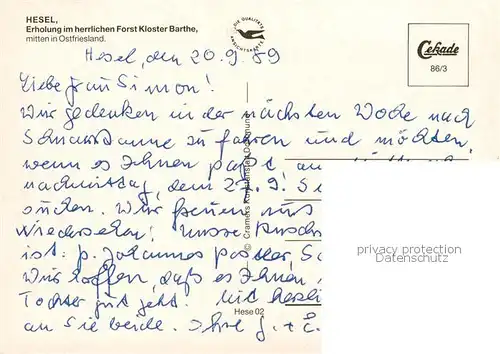 HESEL,
Erholung im herrlichen Forst Kloster Barthe,
mitten in Ostfriesland.
DIE QUALITÄTS ANSICHTSKARTE
Cekade
86/3
Hesel, den 20.9.89
Liebe Frau Simon!
Wir gedenken in der nächsten Woche nach
zu fahren und möchten,
wenn es Ihnen paßt, am
nachmittag, dem 27.9. Si
suchen. Wir freuen uns
Wiedersehen! Unsere Ansch
ist: p. Johannes
Wir hoffen, daß es Ihnen
Tochter gut geht. Mit herzli
an Sie beide. Ihre J. + E.
© Cramers Kunstanstalt, Dortmund
Hese 02
privacy protection
Datenschutz